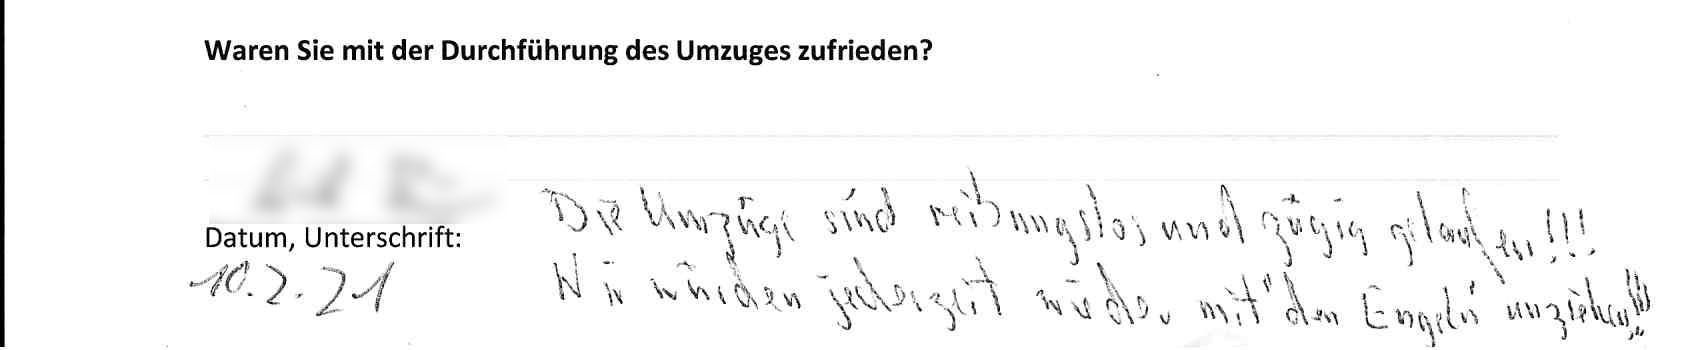 Waren Sie mit der Durchführung des Umzuges zufrieden?
Die Umzüge sind reibungslos und zügig gelaufen!!!
Datum, Unterschrift:
10.2.21
Wir würden jederzeit wieder mit "den Engeln" umziehen!!!